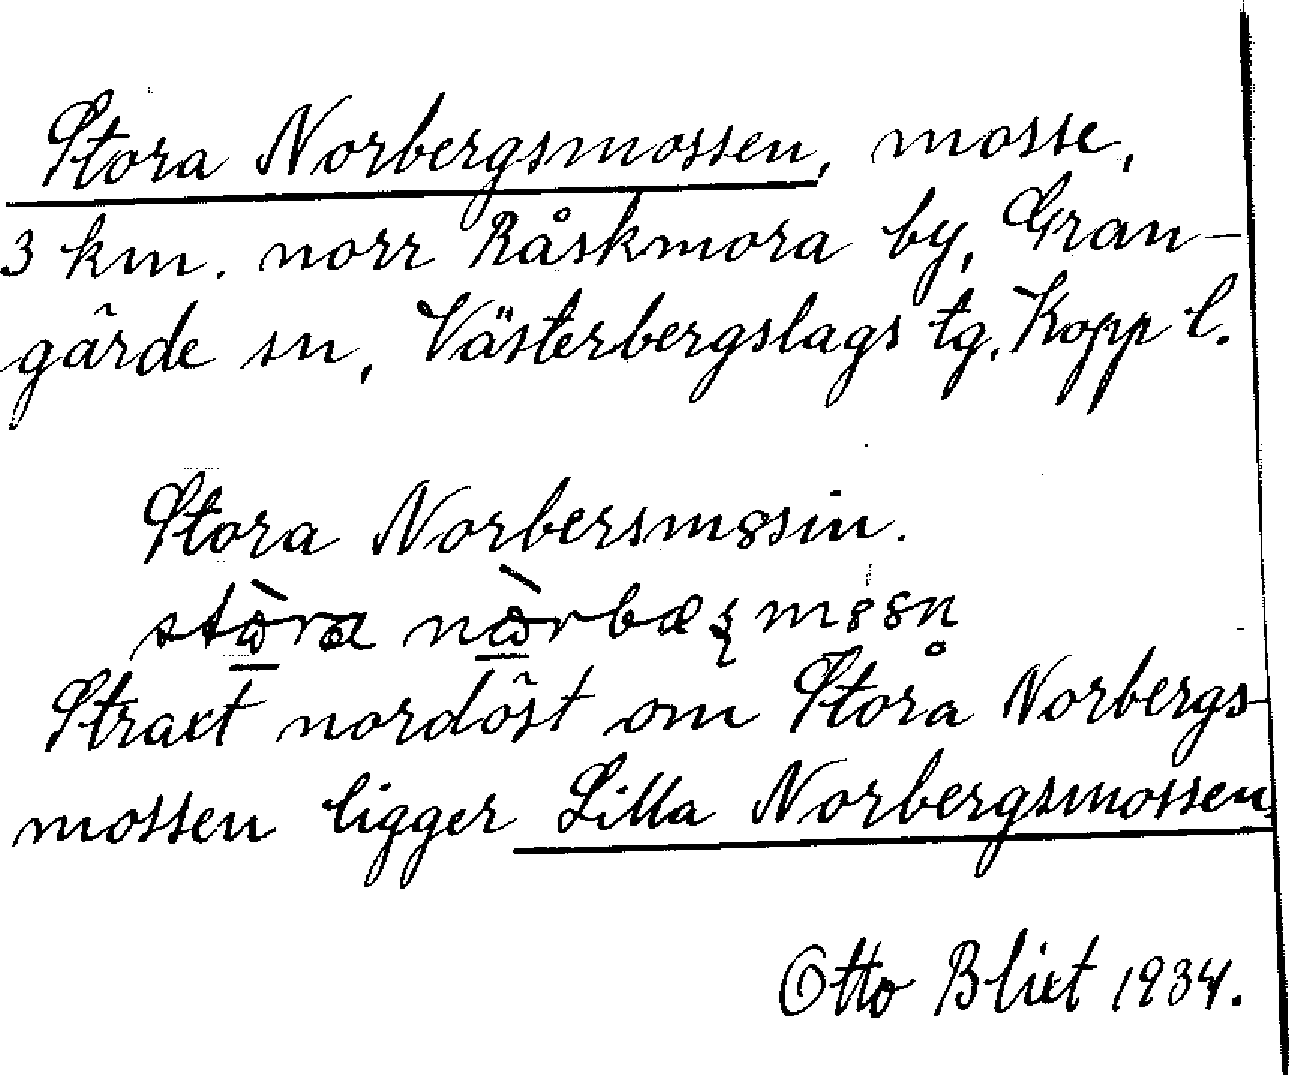 Stora Norbergsmossen, mosse,
3 km. norr Råskmora by, Gran-
gärde sn, Västerbergslags tg. Kopp l.
Stora Norbersmssin.
Straxt nordöst om Stora Norbergs-
mossen ligger Lilla Norbergsmossen
Otto Blixt 1934.